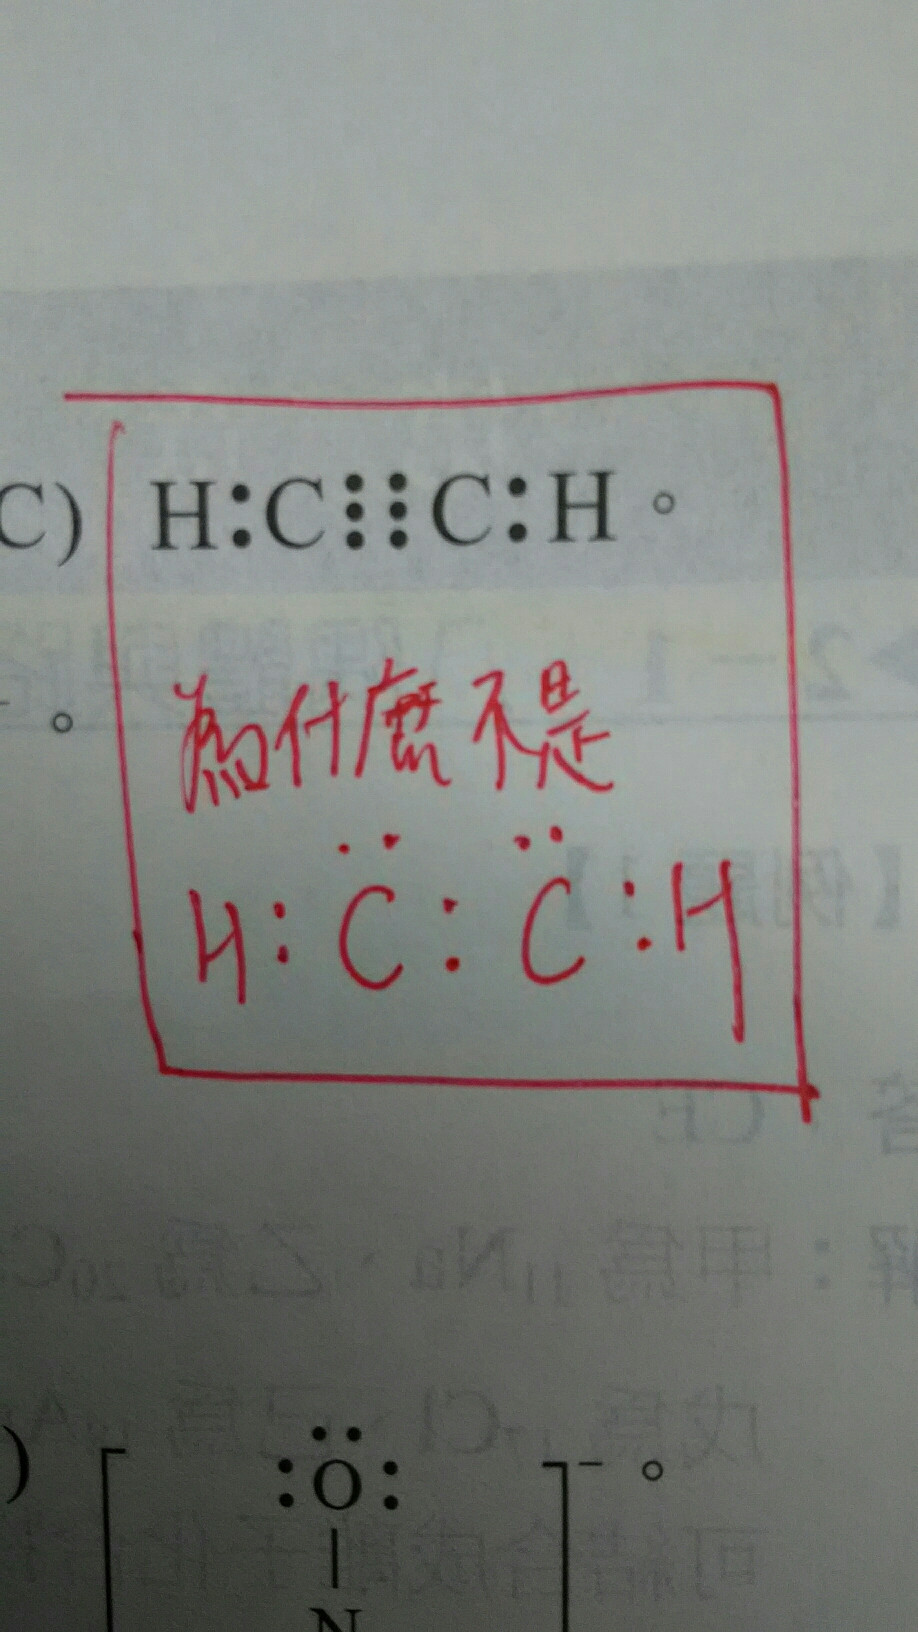 C) H:C⋮⋮C:H。
為什麼不是
。
‥ ‥
H:C:C:H
‥
) [ :O: ]⁻。
|
N